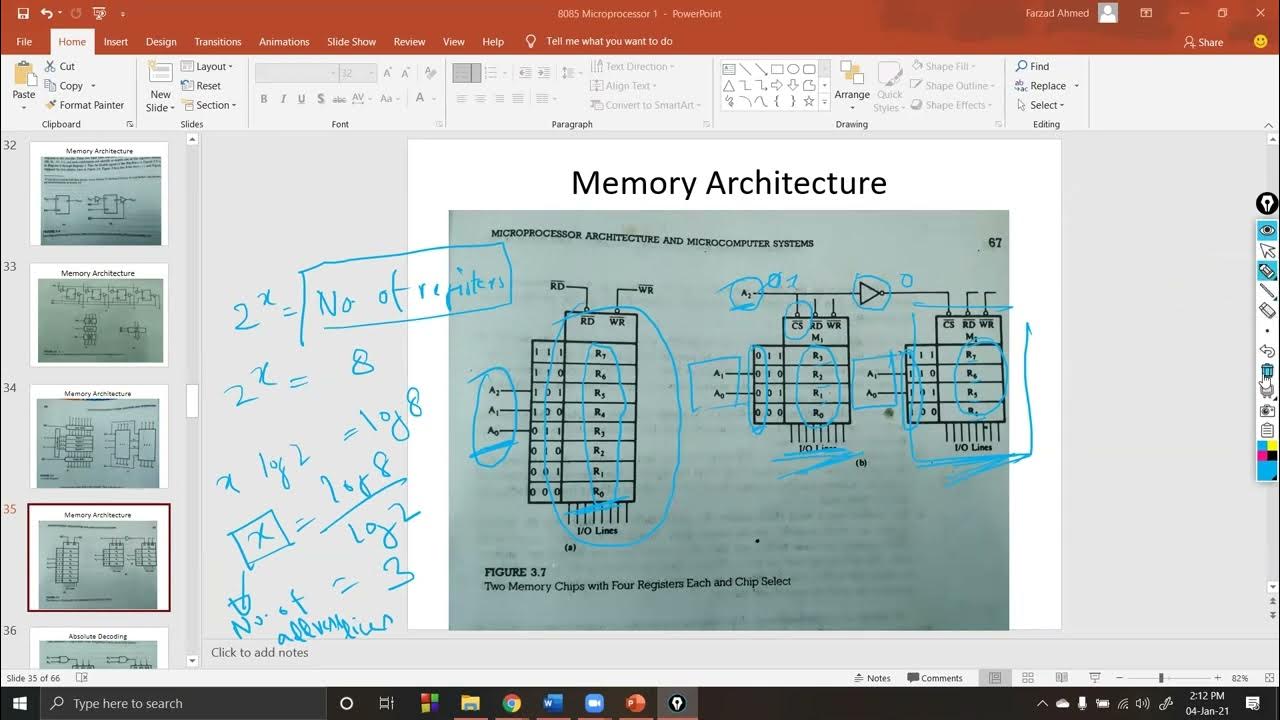 8085 Microprocessor 1 - PowerPoint
Farzad Ahmed
File Home Insert Design Transitions Animations Slide Show Review View Help Tell me what you want to do
Share
Paste
Cut
Copy
Format Painter
Clipboard
New Slide
Layout
Reset
Section
Slides
32
B I U S abc AV Aa A
Font
Text Direction
Align Text
Convert to SmartArt
Paragraph
Arrange
Quick Styles
Shape Fill
Shape Outline
Shape Effects
Drawing
Find
Replace
Select
Editing
32
Memory Architecture
33
Memory Architecture
34
Memory Architecture
35
Memory Architecture
36
Absolute Decoding
Memory Architecture
MICROPROCESSOR ARCHITECTURE AND MICROCOMPUTER SYSTEMS 67
2^x = No of registers
2^x = 8
x log 2 = log 8
x = log 8 / log 2
= 3
No. of address lines
RD WR
RD WR
1 1 1 R7
1 1 0 R6
A2 1 0 1 R5
A1 1 0 0 R4
A0 0 1 1 R3
0 1 0 R2
0 0 1 R1
0 0 0 R0
I/O Lines
(a)
A2 0
CS RD WR
M1
0 1 1 R3
A1 0 1 0 R2
A0 0 0 1 R1
0 0 0 R0
I/O Lines
(b)
CS RD WR
1 1 R7
A1 1 0 R6
A0 0 1 R5
0 0
I/O Lines
FIGURE 3.7
Two Memory Chips with Four Registers Each and Chip Select
Click to add notes
Slide 35 of 66
Notes Comments
82%
Type here to search
2:12 PM
04-Jan-21